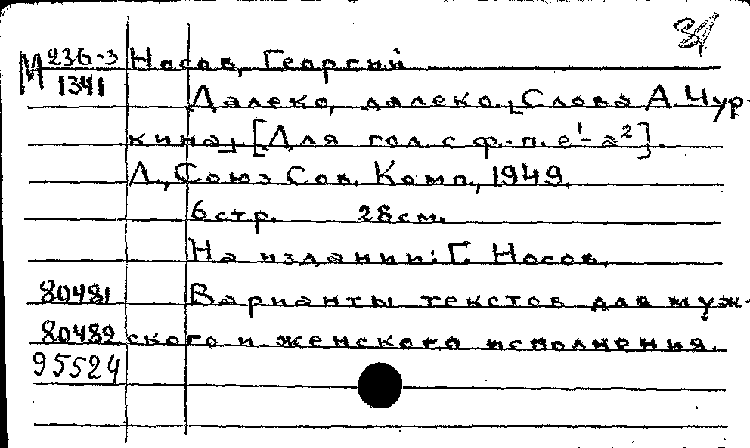 М 236-3 Носов, Георгий
1341
Далеко, далеко. [Слова А. Чур-
кина]. [Для гол. с ф.-п. e¹-a²].
Л., Союз Сов. Комп., 1949.
6 стр. 28 см.
На издании: Г. Носов.
80481 Варианты текстов для муж-
80482 ского и женского исполнения.
95524